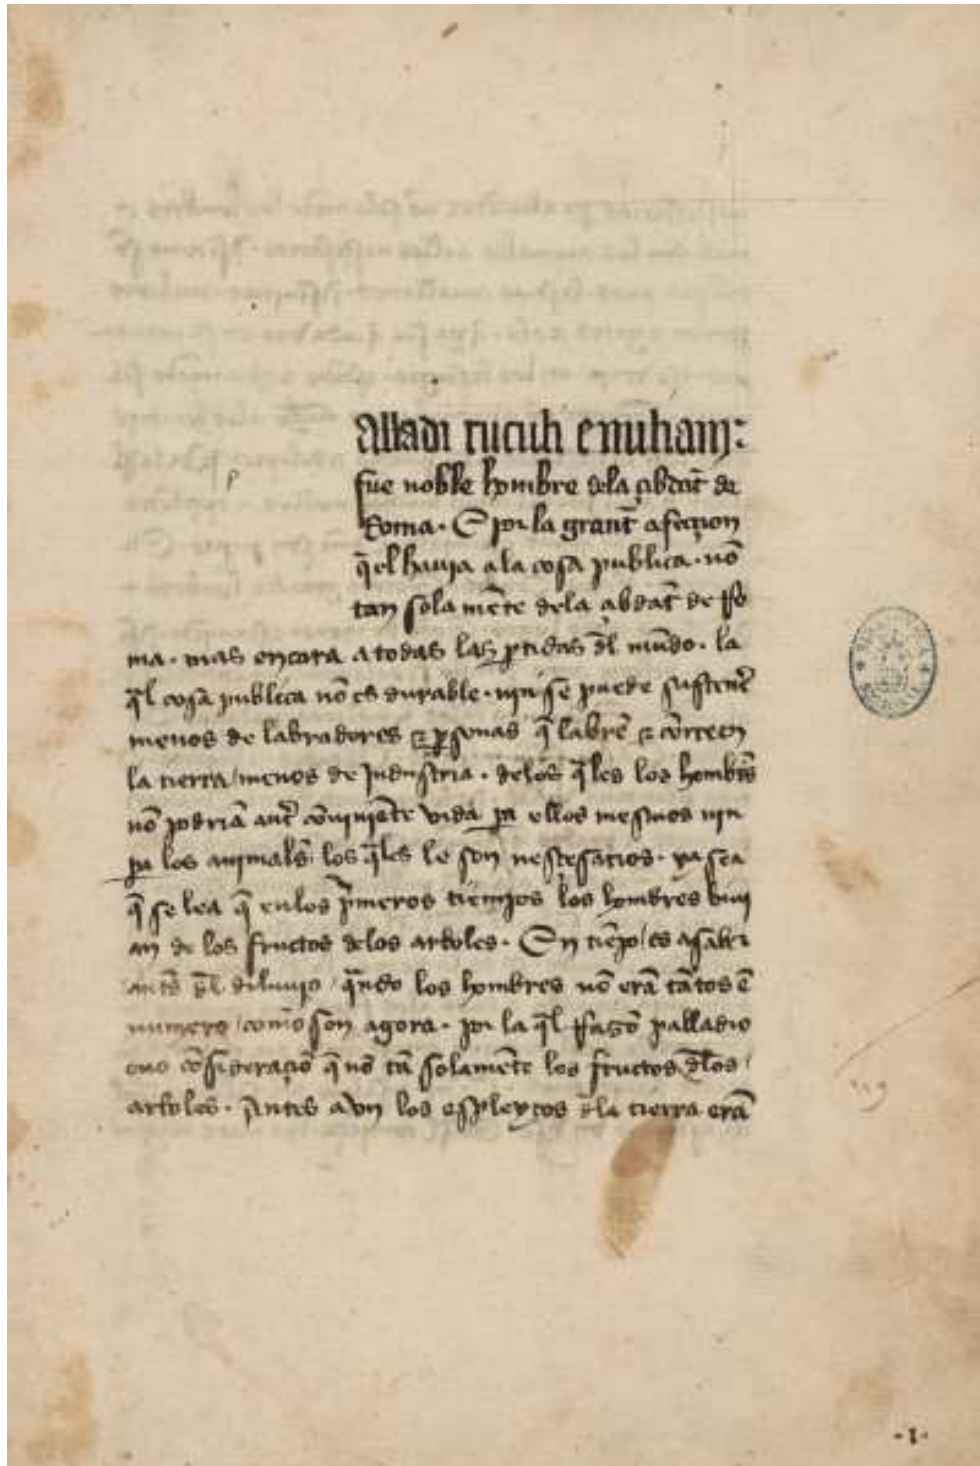 alladi ruculi emiliani:
fue noble hombre dela çibdat de
Roma. E por la grant afeççion
q̃ el hauja ala cosa publica. nõ
tan sola mẽte dela çibdat de Ro
ma. mas encara a todas las ptidas dl mũdo. la
q̃l cosa publica nõ es durable. nin se puede sustener
menos de labradores & psonas q̃ labrẽ & cõrreen
la tierra / menos de jndustria. delos q̃les los hombrs
nõ podriã auer cõuiniẽte vida pa ellos mesmos nin
pa los animals los q̃les le son nesçesarios. ya sea
q̃ se lea q̃ enlos pmeros tiempos los hombres biuj
an de los fructos delos arboles. En tiẽpo / es asaber
antes dl diluujo / q̃ndo los hombres nõ erã tãtos ẽ
numero / como son agora. por la q̃l Razõ palladio
ouo cõsideraçiõ q̃ nõ tã solamẽte los fructos dlos /
arboles. Antes avn los espleytos dla tierra erã
p
-1-